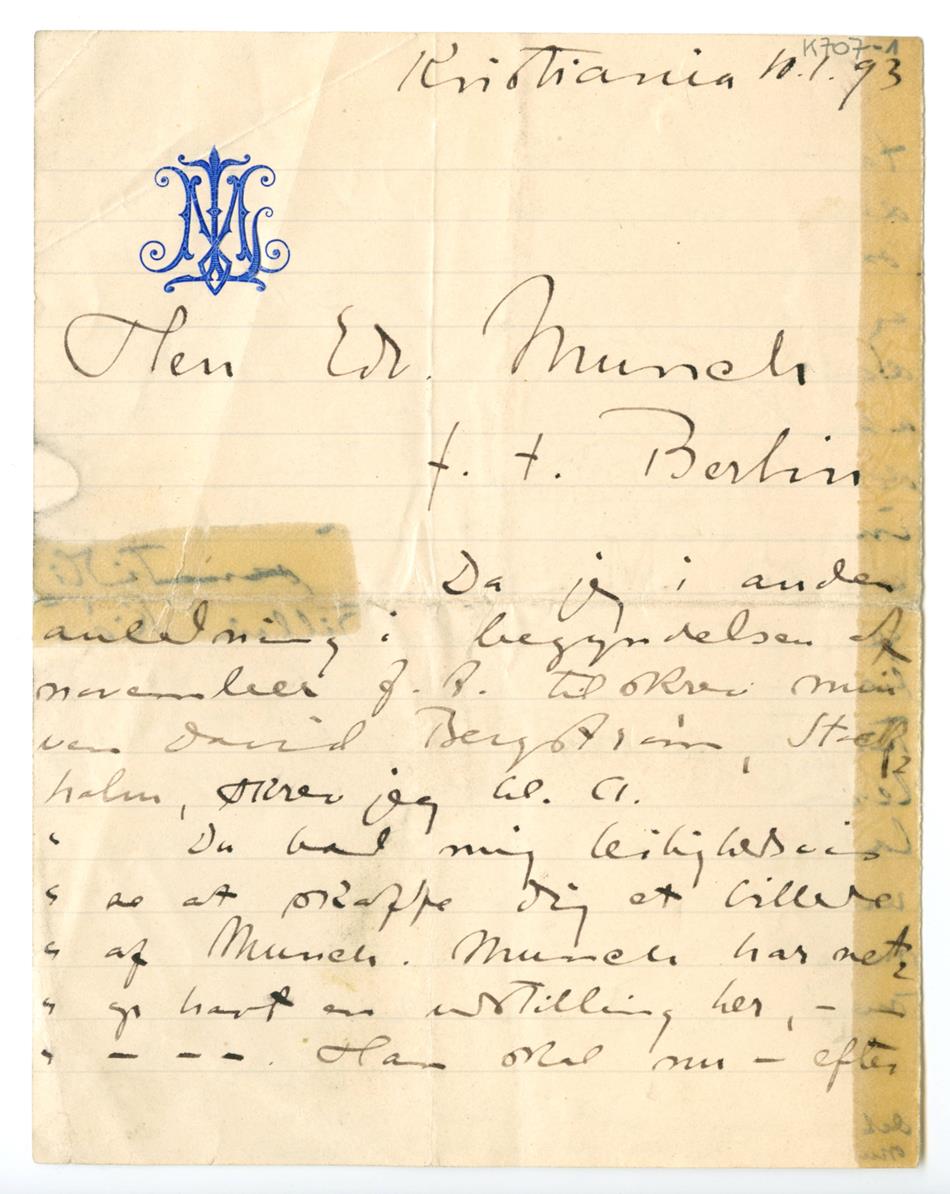 K707-1
Kristiania 10.1.93
Herr Edv. Munch
f. t. Berlin
Da jeg i anden
anledning i begyndelsen af
november f. A. tilskrev min
ven David Bergstrøm, Stock-
holm, skrev jeg bl. a.
" Du bad mig leilighedsvis
" se at skaffe dig et billede
" af Munch. Munch har net-
" op havt en udstilling her, –
" – – – . Han skal nu – efter